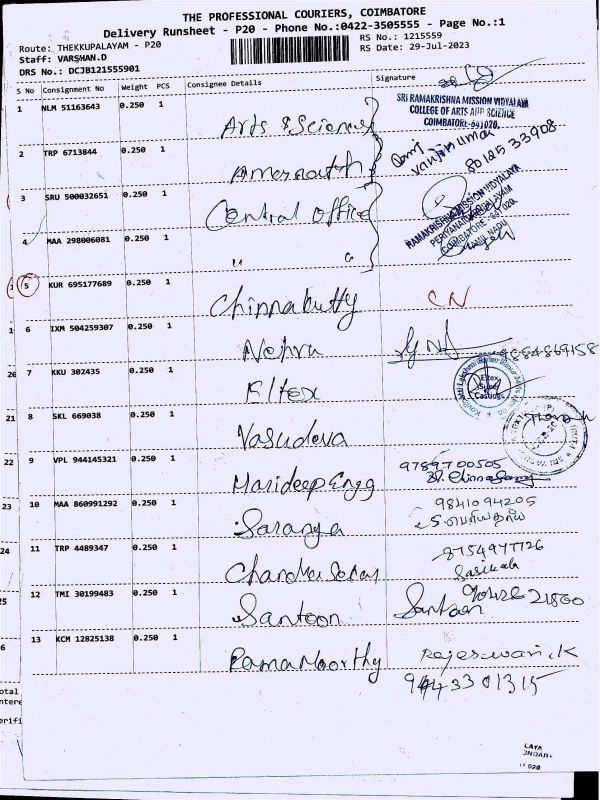 THE PROFESSIONAL COURIERS, COIMBATORE
Delivery Runsheet - P20 - Phone No.:0422-3505555 - Page No.:1
Route: THEKKUPALAYAM - P20
RS No.: 1215559
Staff: VARSHAN.D
RS Date: 29-Jul-2023
DRS No.: DCJB121555901
S No Consignment No Weight PCS Consignee Details Signature
1 NLM 51163643 0.250 1 Arts & Science
SRI RAMAKRISHNA MISSION VIDYALAYA
COLLEGE OF ARTS AND SCIENCE
COIMBATORE-641020.
2 TRP 6713844 0.250 1 Amernauth
80125 33908
3 SRU 500032651 0.250 1 Central office
RAMAKRISHNA MISSION VIDYALAYA
PERIYANAICKENPALAYAM
COIMBATORE - 641 020.
TAMIL NADU
4 MAA 298006081 0.250 1 " "
5 KUR 695177689 0.250 1 Chinnakutty CN
6 IXM 504259307 0.250 1 Nehru
9884869158
7 KKU 302435 0.250 1 Eltex
Eltex
Super
Castings
8 SKL 669038 0.250 1 Vasudeva
9 VPL 944145321 0.250 1 Marideep Engg 9789700505
10 MAA 860991292 0.250 1 Saranya 9841094205
11 TRP 4489347 0.250 1 Chandra Sekar 8754977726
Sasikala
12 TMI 30199483 0.250 1 Santoon Santoon 21860
13 KCM 12825138 0.250 1 Rama Moorthy Rajeswari.K
9443301315
20
21
22
23
24
25